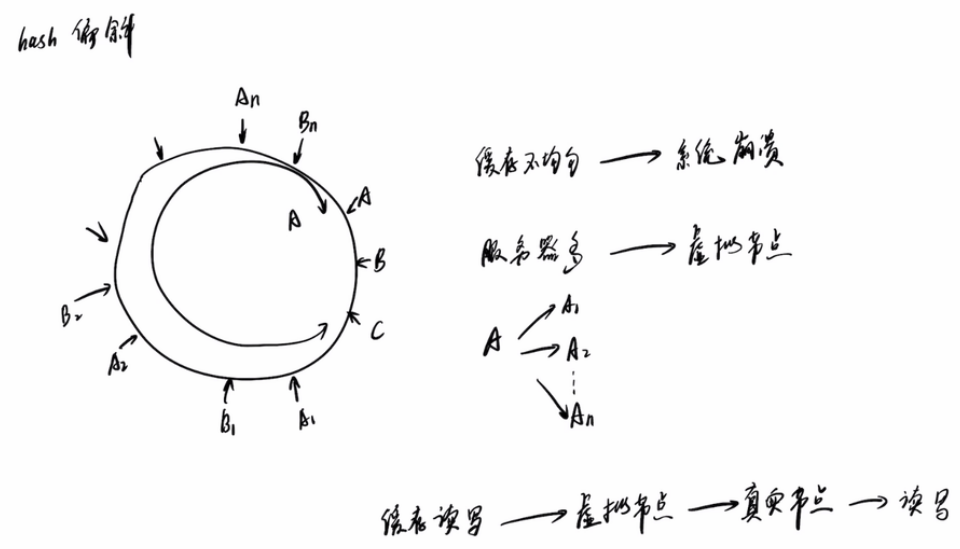 hash 偏斜
An
Bn
A
A
B
C
B2
A2
B1
A1
缓存不均匀 → 系统崩溃
服务器多 → 虚拟节点
A → A1
A2
An
缓存读写 → 虚拟节点 → 真实节点 → 读写